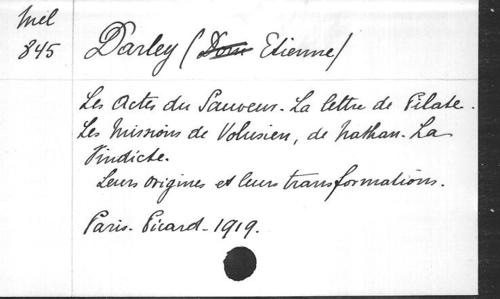 Mel
845
Darley (Dom Etienne)
Les Actes du Sauveur. La lettre de Pilate.
Les Missions de Volusien, de Nathan. La
Vindicte.
Leurs origines et leurs transformations.
Paris. Picard. 1919.